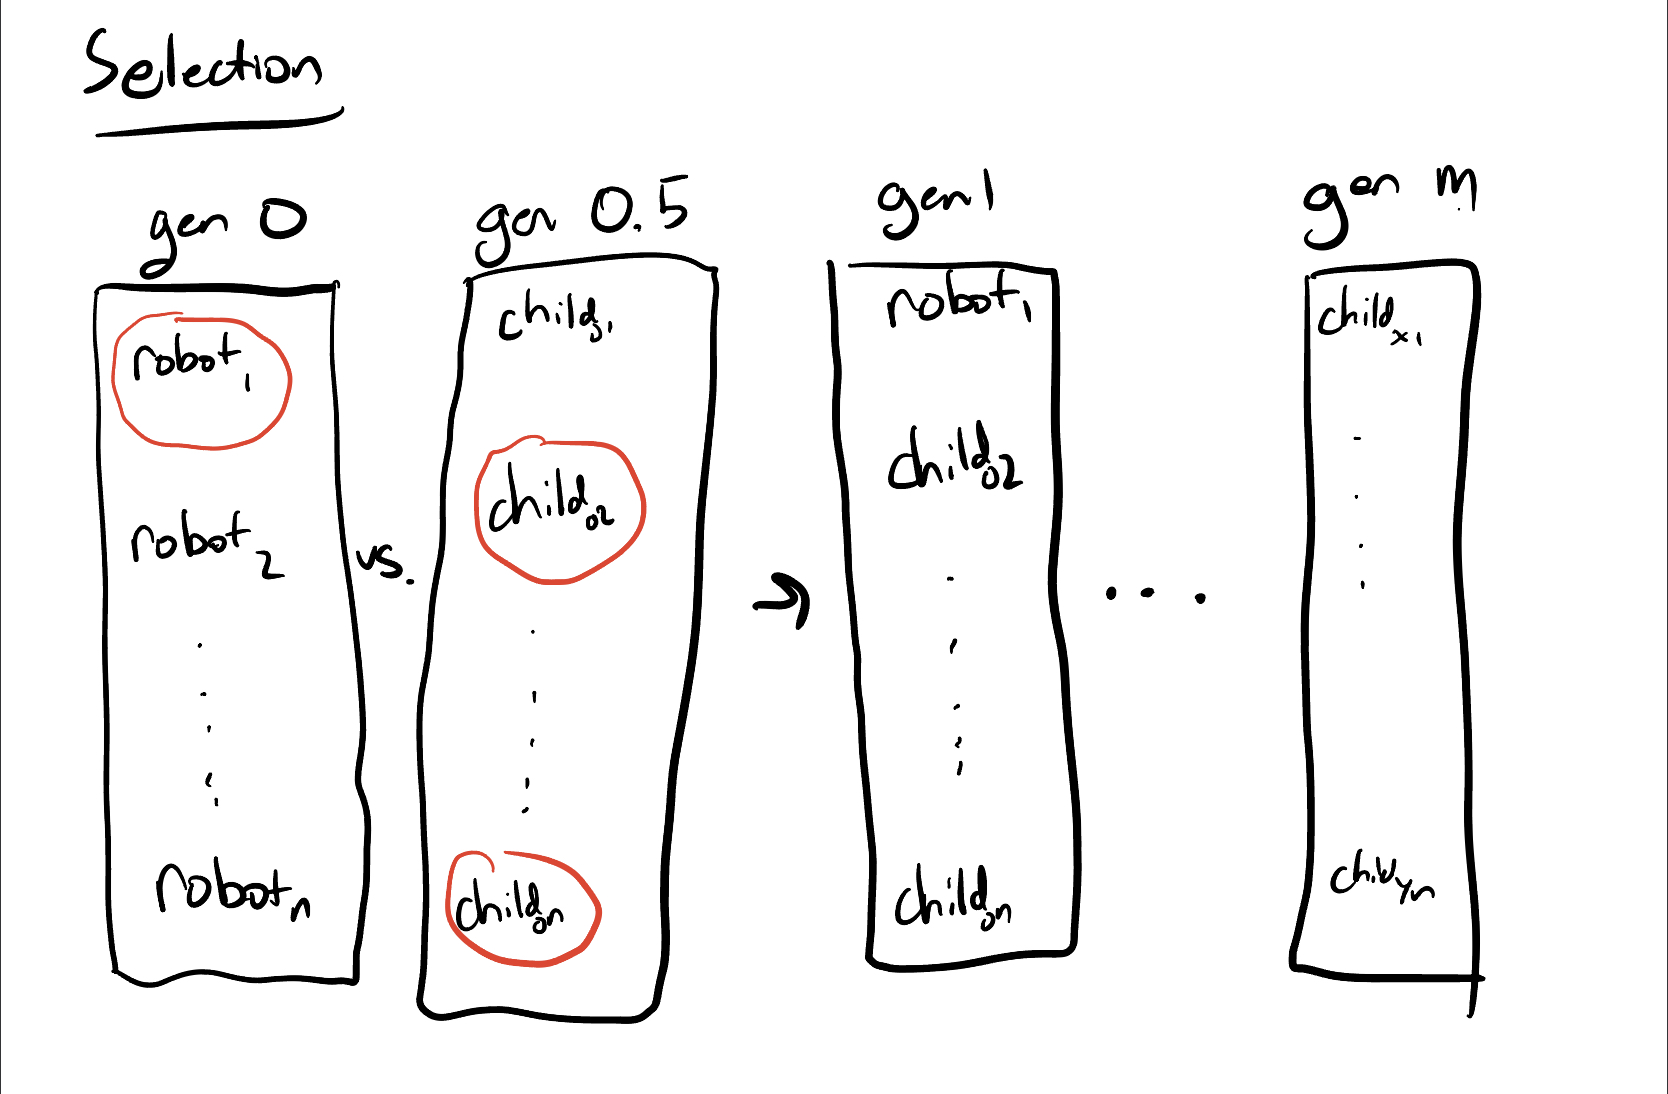 Selection
gen 0
robot1
robot2
robotn
vs.
gen 0.5
child01
child02
child0n
→
gen 1
robot1
child02
child0n
...
gen m
childx1
childyn